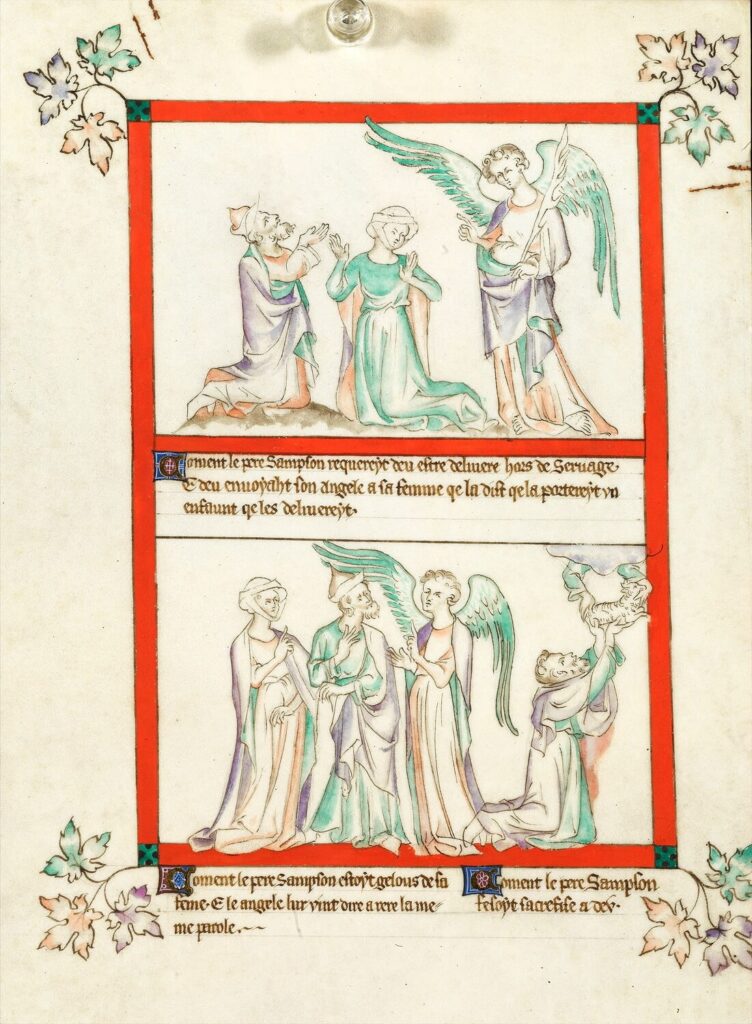 Coment le pere Sampson requereyt deu estre delivere hors de Servage.
E deu envoyaht son angele a sa femme qe la dist qe la portereyt un
enfaunt qe les delivereyt.
Coment le pere Sampson estoyt gelous de sa
feme. E le angele lur vint dire arere la me-
me parole.
Coment le pere Sampson
fesoyt sacrefise a dev.